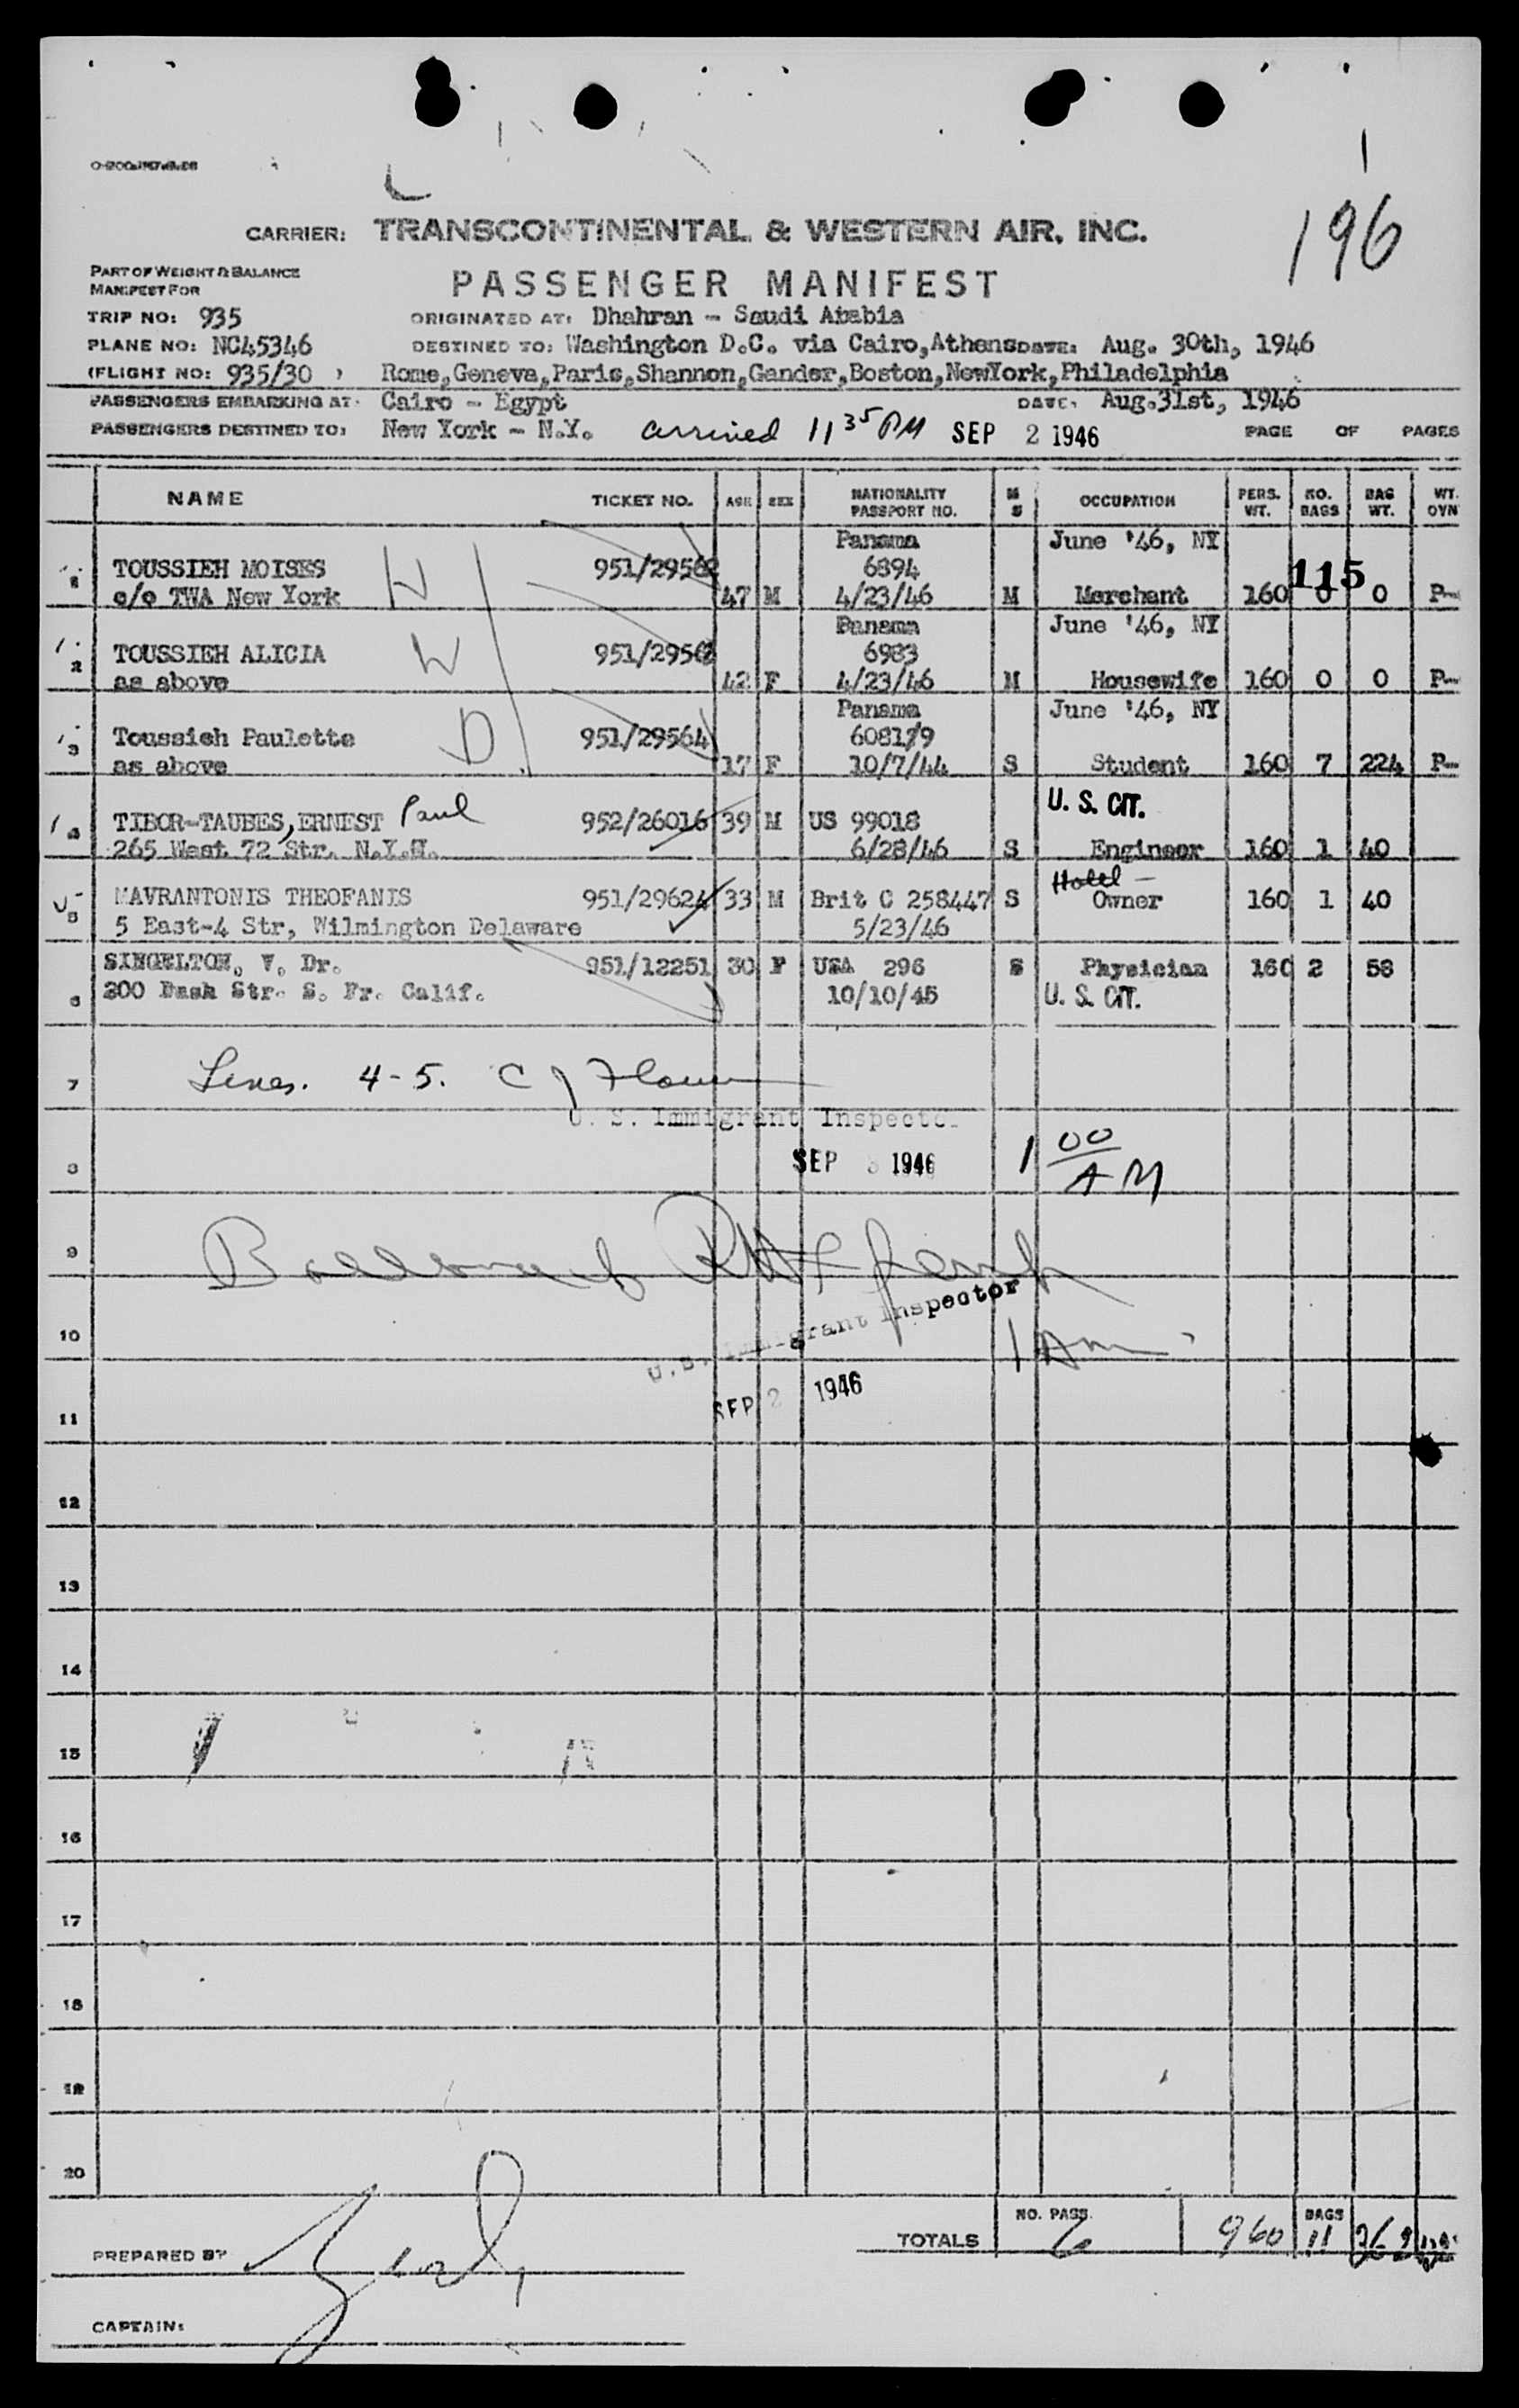 196
CARRIER: TRANSCONTINENTAL & WESTERN AIR, INC.
PART OF WEIGHT & BALANCE
MANIFEST FOR
PASSENGER MANIFEST
TRIP NO: 935 ORIGINATED AT: Dhahran - Saudi Ababia
PLANE NO: NC45346 DESTINED TO: Washington D.C. via Cairo,Athens DATE: Aug. 30th, 1946
(FLIGHT NO: 935/30 ) Rome,Geneva,Paris,Shannon,Gander,Boston,NewYork,Philadelphia
PASSENGERS EMBARKING AT: Cairo - Egypt DATE: Aug.31st, 1946
PASSENGERS DESTINED TO: New York - N.Y. arrived 11 35 PM SEP 2 1946 PAGE OF PAGES
NAME TICKET NO. AGE SEX NATIONALITY PASSPORT NO. M S OCCUPATION PERS. WT. NO. BAGS BAG WT. WT. OVN
Panama June '46, NY
1 TOUSSIEH MOISES W 951/29562 6894 115
c/o TWA New York 47 M 4/23/46 M Merchant 160 0 0 P-
Panama June '46, NY
2 TOUSSIEH ALICIA W 951/29562 6983
as above 42 F 4/23/46 M Housewife 160 0 0 P-
Panama June '46, NY
3 Toussieh Paulette D 951/29564 608179
as above 17 F 10/7/44 S Student 160 7 224 P-
U. S. CIT.
4 TIBOR-TAUBES,ERNEST Paul 952/26016 39 M US 99018
265 West 72 Str. N.Y.C. 6/28/46 S Engineer 160 1 40
Hotel -
5 MAVRANTONIS THEOFANIS 951/29624 33 M Brit C 258447 S Owner 160 1 40
5 East-4 Str, Wilmington Delaware 5/23/46
SINGELTON, V. Dr. 951/12251 30 F USA 296 S Physician 160 2 58
6 300 Bash Str. S. Fr. Calif. 10/10/45 U. S. CIT.
7 Lines. 4-5. C J
U. S. Immigrant Inspector
8 SEP 1946 1 00 AM
9
U.S. Immigrant Inspector
10 1 Am
SEP 2 1946
11
12
13
14
15
16
17
18
19
20
TOTALS NO. PASS. 6 960 BAGS 11
PREPARED BY
CAPTAIN: